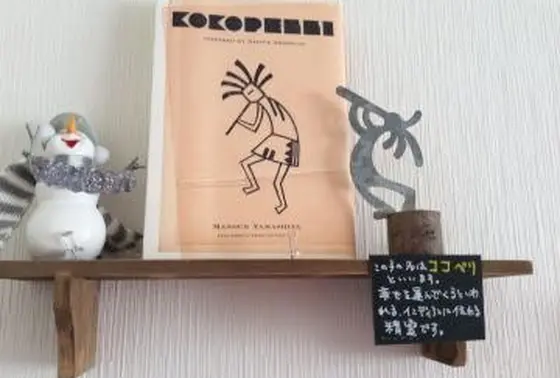 KOKOPELLI
MASAKI YAMASHITA
この子の名はココペリ
といいます。
幸せを運んでくるといわ
れる、インディアンに伝わる
精霊です。